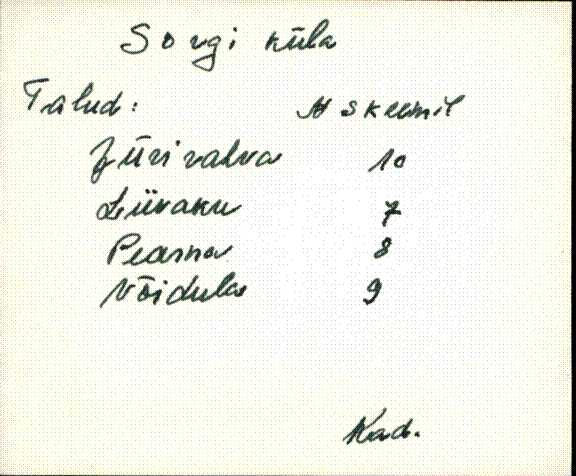 Sorgi küla
Talud: N skeemil
Jüri rahva 10
Liivaku 7
Pearna 8
Võidula 9
Kad.